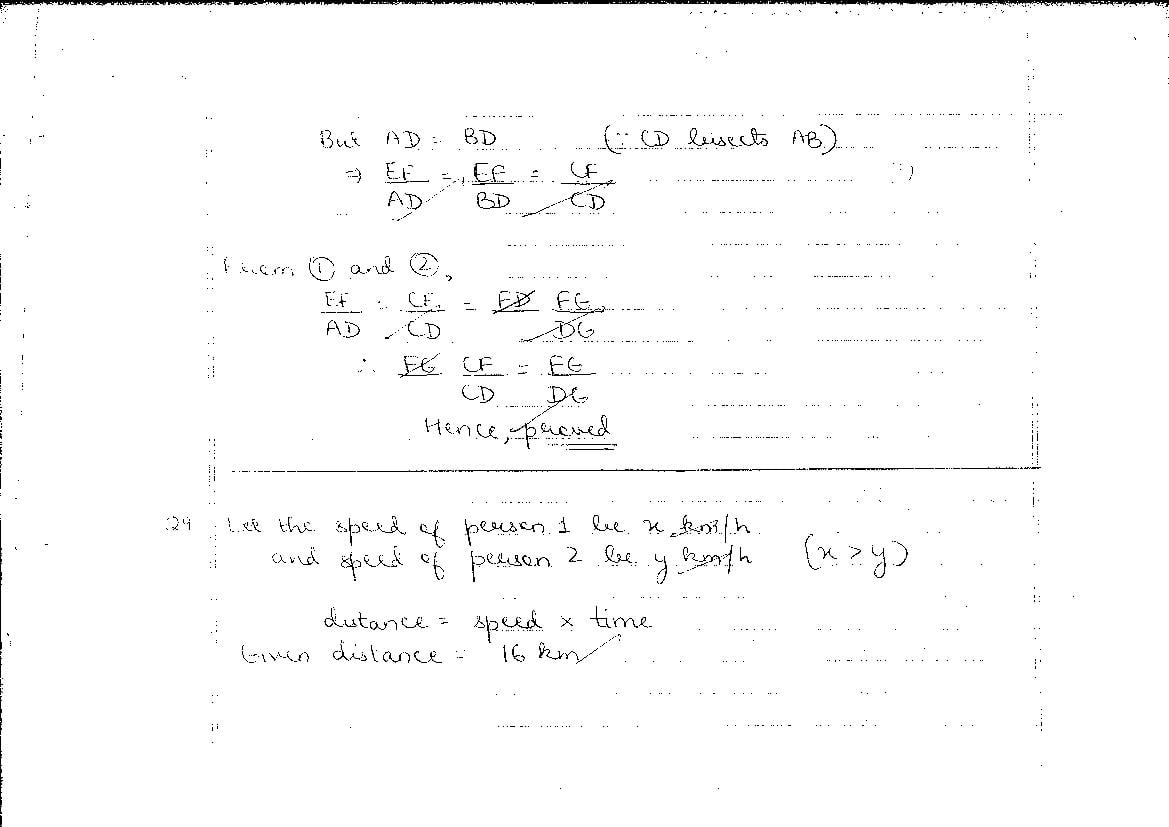 But AD = BD (∵ CD bisects AB)
⇒ EF/AD = EF/BD = CF/CD
From ① and ②,
EF/AD = CF/CD = FG/DG
∴ CF/CD = FG/DG
Hence, proved
29 Let the speed of person 1 be x km/h
and speed of person 2 be y km/h (x > y)
distance = speed × time
Given distance = 16 km